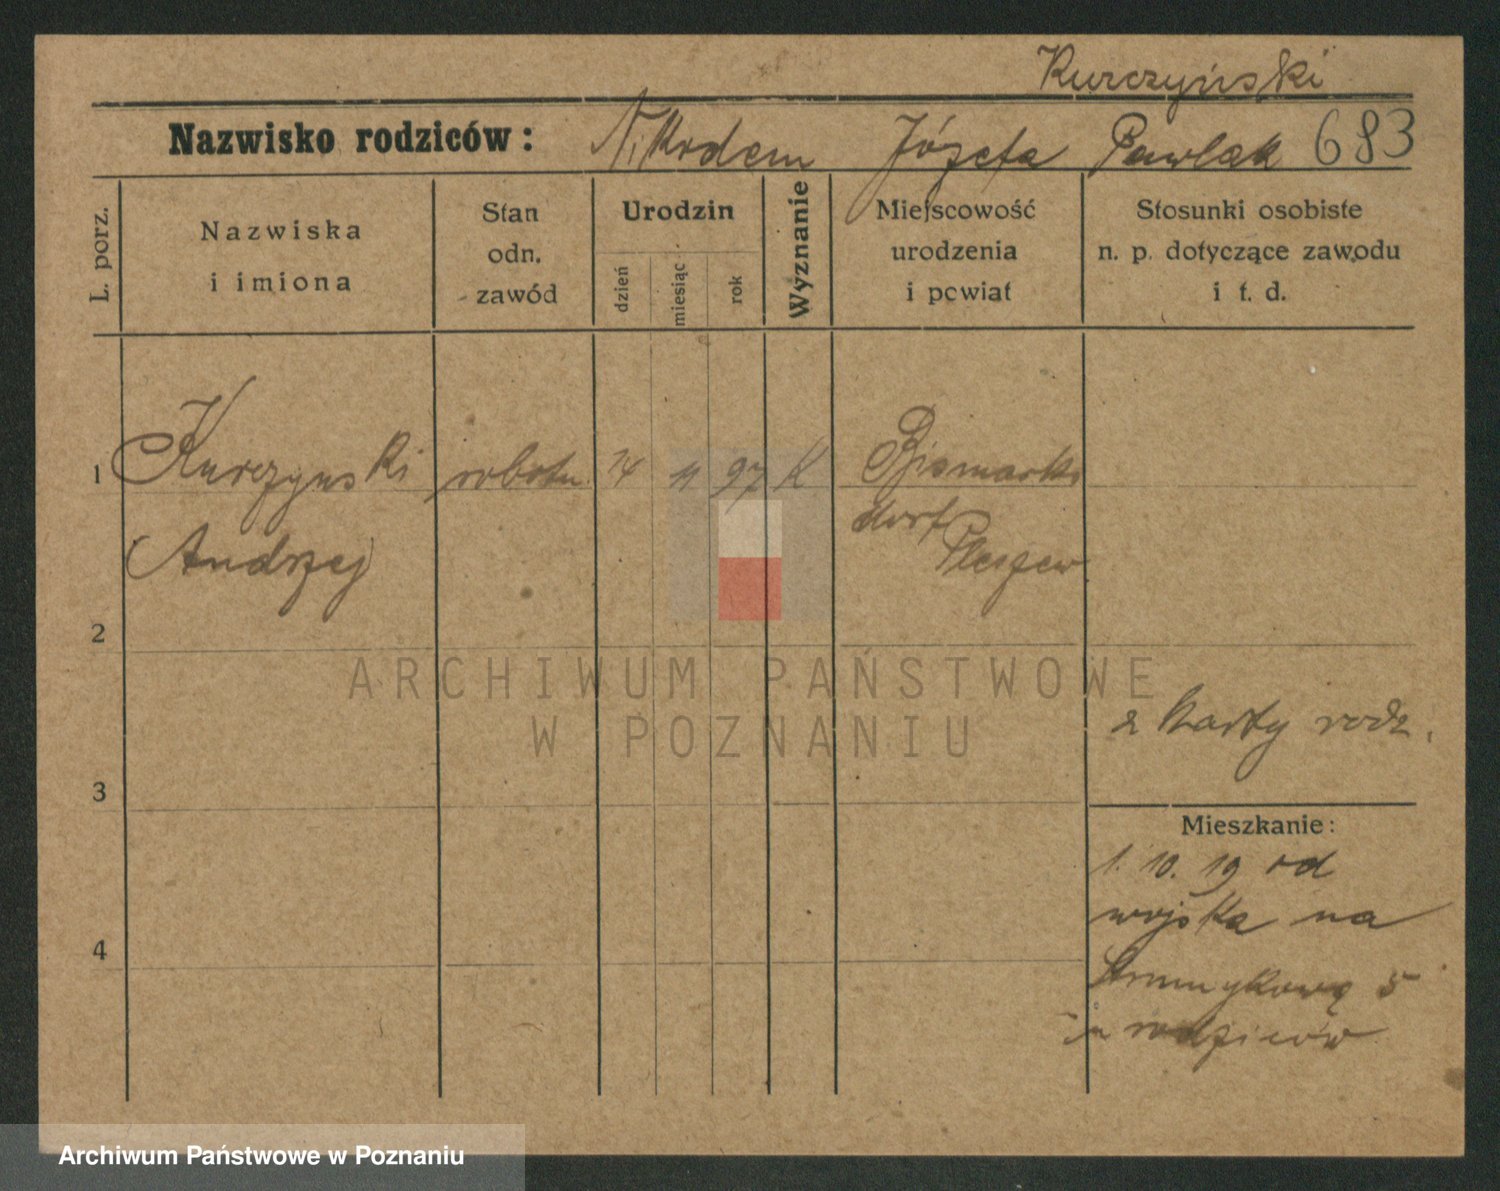 Kurczyński
Nazwisko rodziców: Nikodem Józefa Pawlak 683
L. porz.
Nazwiska
i imiona
Stan
odn.
zawód
Urodzin
dzień
miesiąc
rok
Wyznanie
Miejscowość
urodzenia
i powiat
Stosunki osobiste
n. p. dotyczące zawodu
i t. d.
1 Kurczynski robotn. 14 11 97 K Bismarks
dorf
Andrzej Pleszew
2
z karty rodz.
3
Mieszkanie:
1. 10. 19 od
wojska na
4
Strumykową 5
rodziców
ARCHIWUM PAŃSTWOWE
W POZNANIU
Archiwum Państwowe w Poznaniu